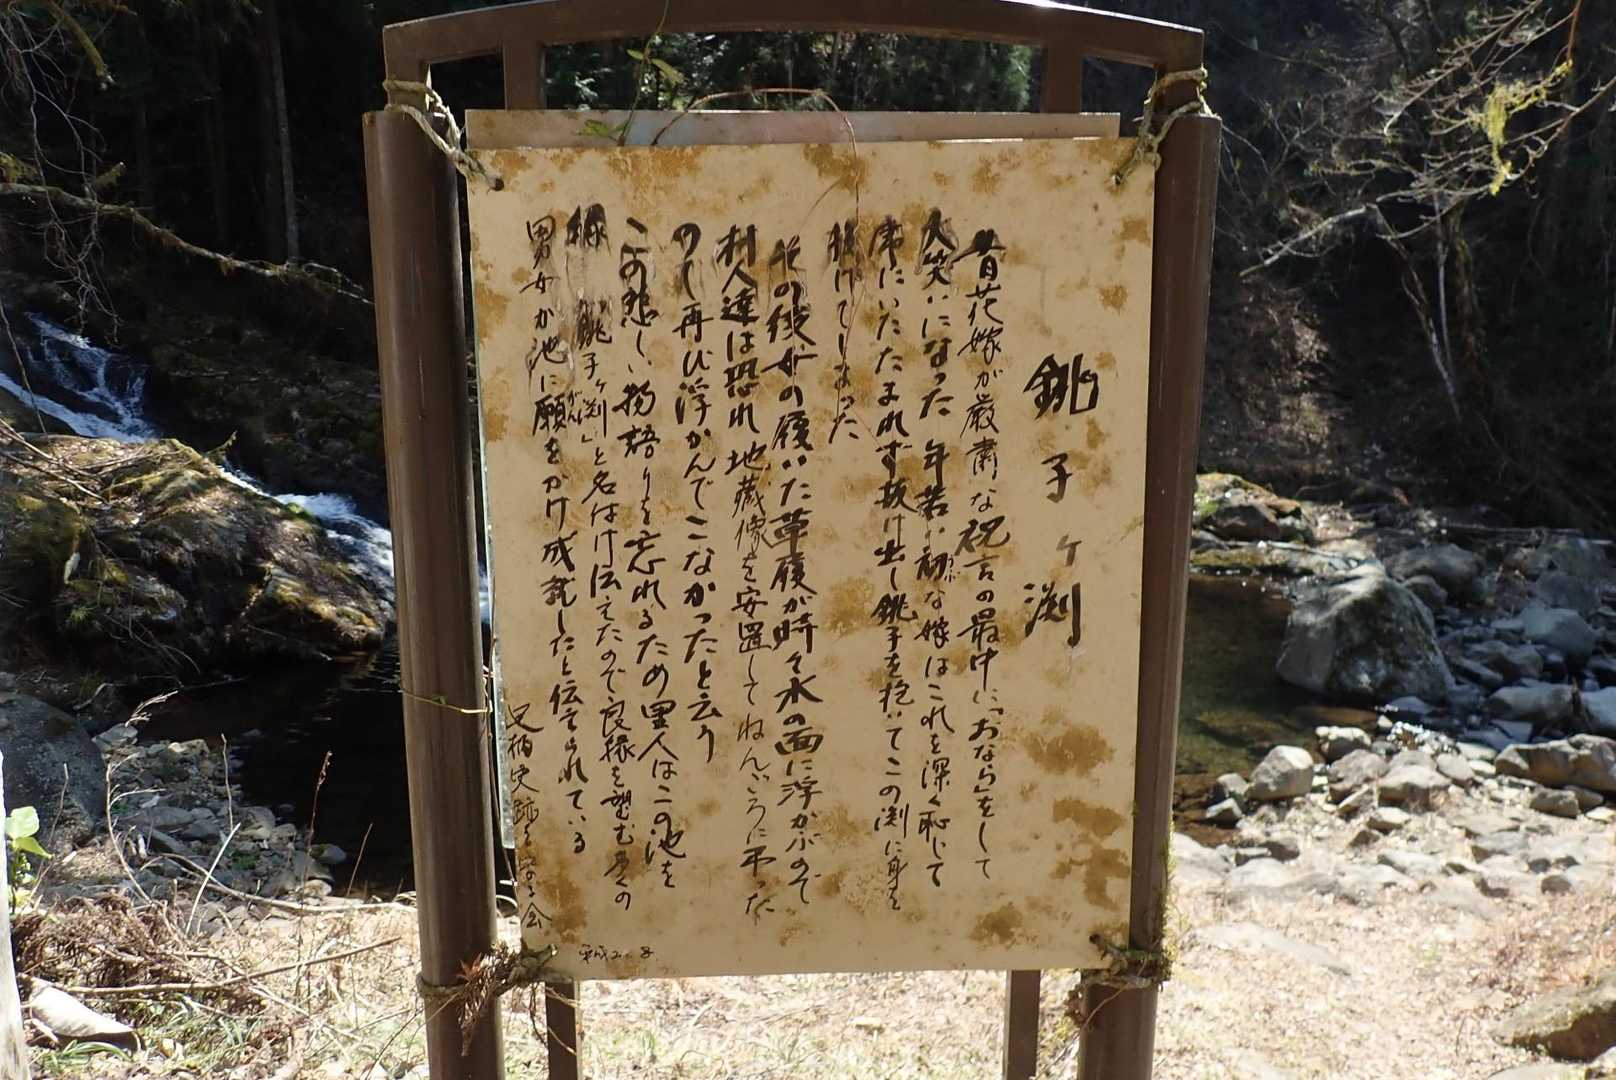 銚子ヶ渕
昔花嫁が厳粛な祝言の最中に「おなら」をして
人笑いになった 年若い初な嫁はこれを深く恥じて
席にいたたまれず抜け出し銚子を抱いてこの渕に身を
投げてしまった
その後女の履いた草履が時々水の面に浮かぶので
村人達は恐れ地蔵像を安置してねんごろに弔った
ので再び浮かんでこなかったと云う
この悲しい物語りを忘れるため里人はこの池を
縁 「銚子ヶ渕」と名付け伝えたので良縁を望む多くの
男女が池に願をかけ成就したと伝えられている
がん
史跡を守る会
平成2